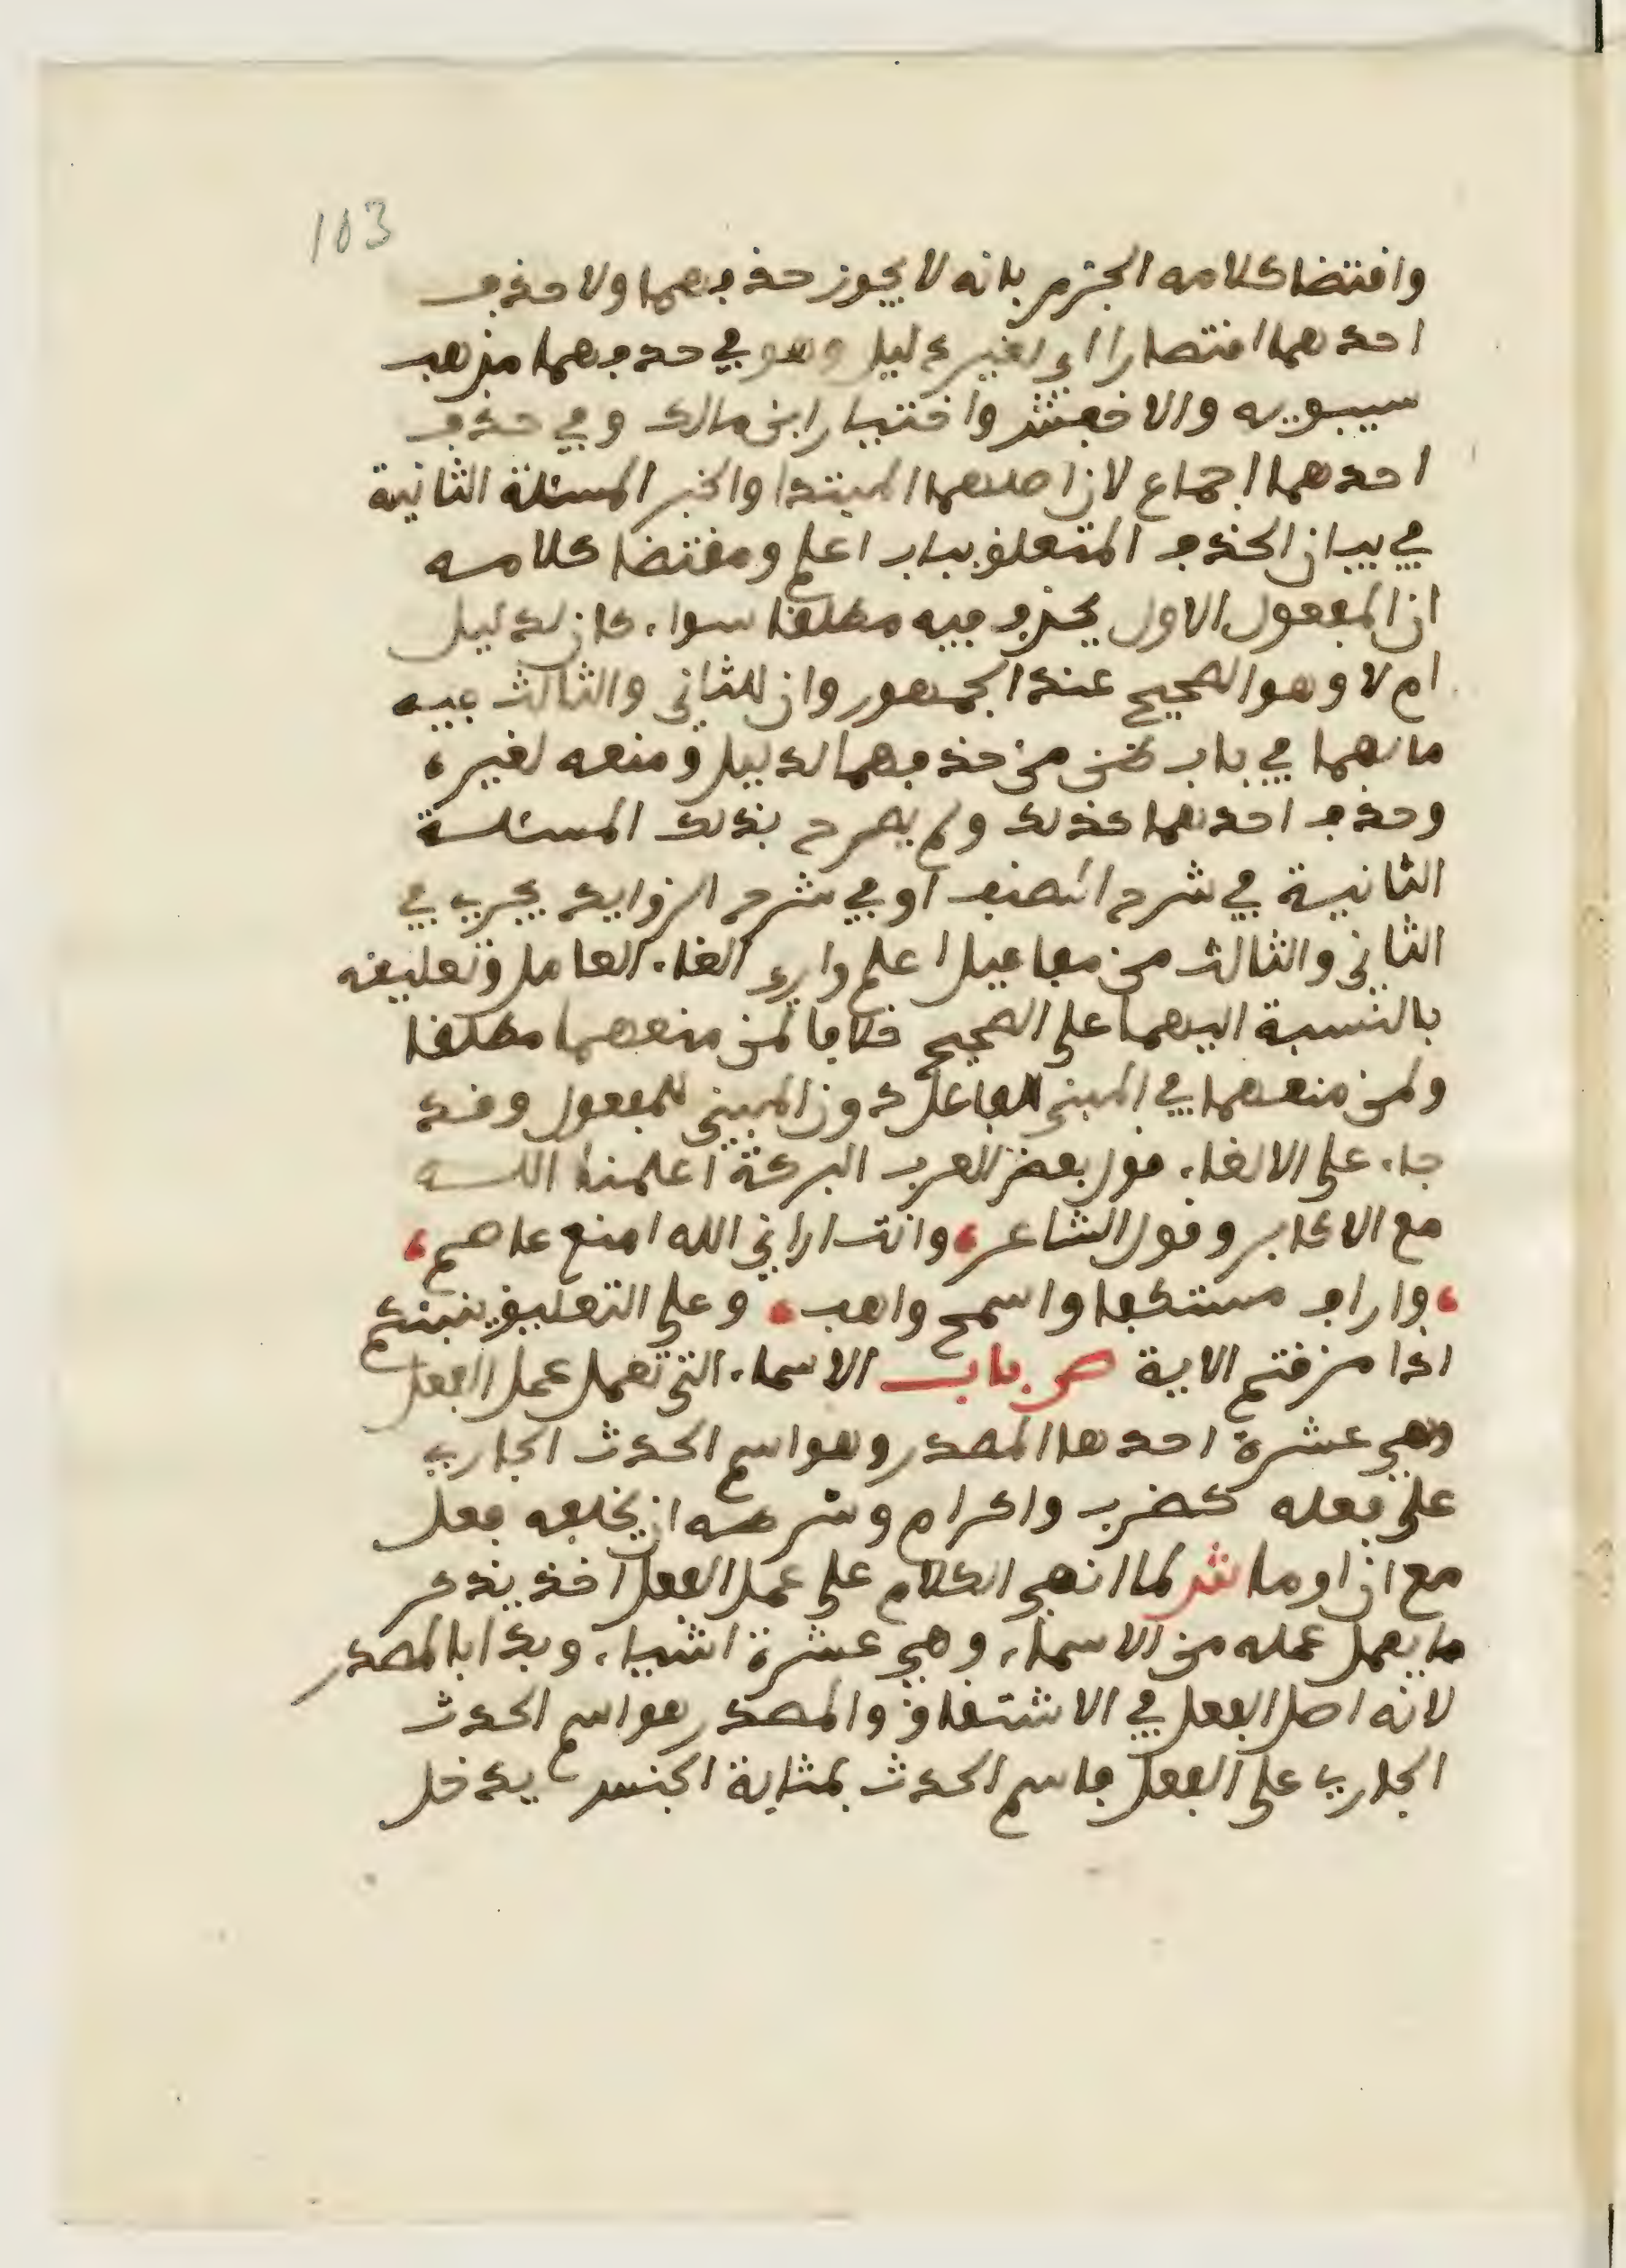 103
واقتضا كلامه الجزم بانه لا يجوز حذفهما ولا حذف
احدهما اقتصارا اي لغير دليل وهو في حذفهما مذهب
سيبويه والاخفش واختيار ابن مالك وفي حذف
احدهما اجماع لان اصلهما المبتدا والخبر المسئلة الثانية
في بيان الحذف المتعلق بباب اعلم ومقتضا كلامه
ان المفعول الاول يحذف فيه مطلقا سواء كان لدليل
ام لا وهو الصحيح عند الجمهور وان للثاني والثالث فيه
ما لهما في باب ظن من حذفهما لدليل ومنعه لغيره
وحذف احدهما كذلك ولم يصرح بذلك المسئلة
الثانية في شرح المصنف او في شرح الزوايد يجري في
الثاني والثالث من مفاعيل اعلم واري الغاء العامل وتعليقه
بالنسبة اليهما على الصحيح خلافا لمن منعهما مطلقا
ولمن منعهما في المبني للفاعل دون المبني للمفعول وقد
جاء على الالغاء قول بعض العرب البركة اعلمنا الله
مع الاكابر وقول الشاعر، وانت اراني الله امنع عاصم،
، واراف مستكفا واسمح واهب، وعلى التعليق ينبئكم
اذا مزقتم الاية ص باب الاسماء التي تعمل عمل الفعل
وهي عشرة احدها المصدر وهو اسم الحدث الجاري
على فعله كضرب واكرام وشرطه ان يخلفه فعل
مع ان او ما ش لما انهى الكلام على عمل الفعل اخذ يذكر
ما يعمل عمله من الاسماء وهي عشرة اشياء وبدا بالمصدر
لانه اصل الفعل في الاشتقاق والمصدر هو اسم الحدث
الجاري على الفعل فاسم الحدث بمثابة الجنس يدخل